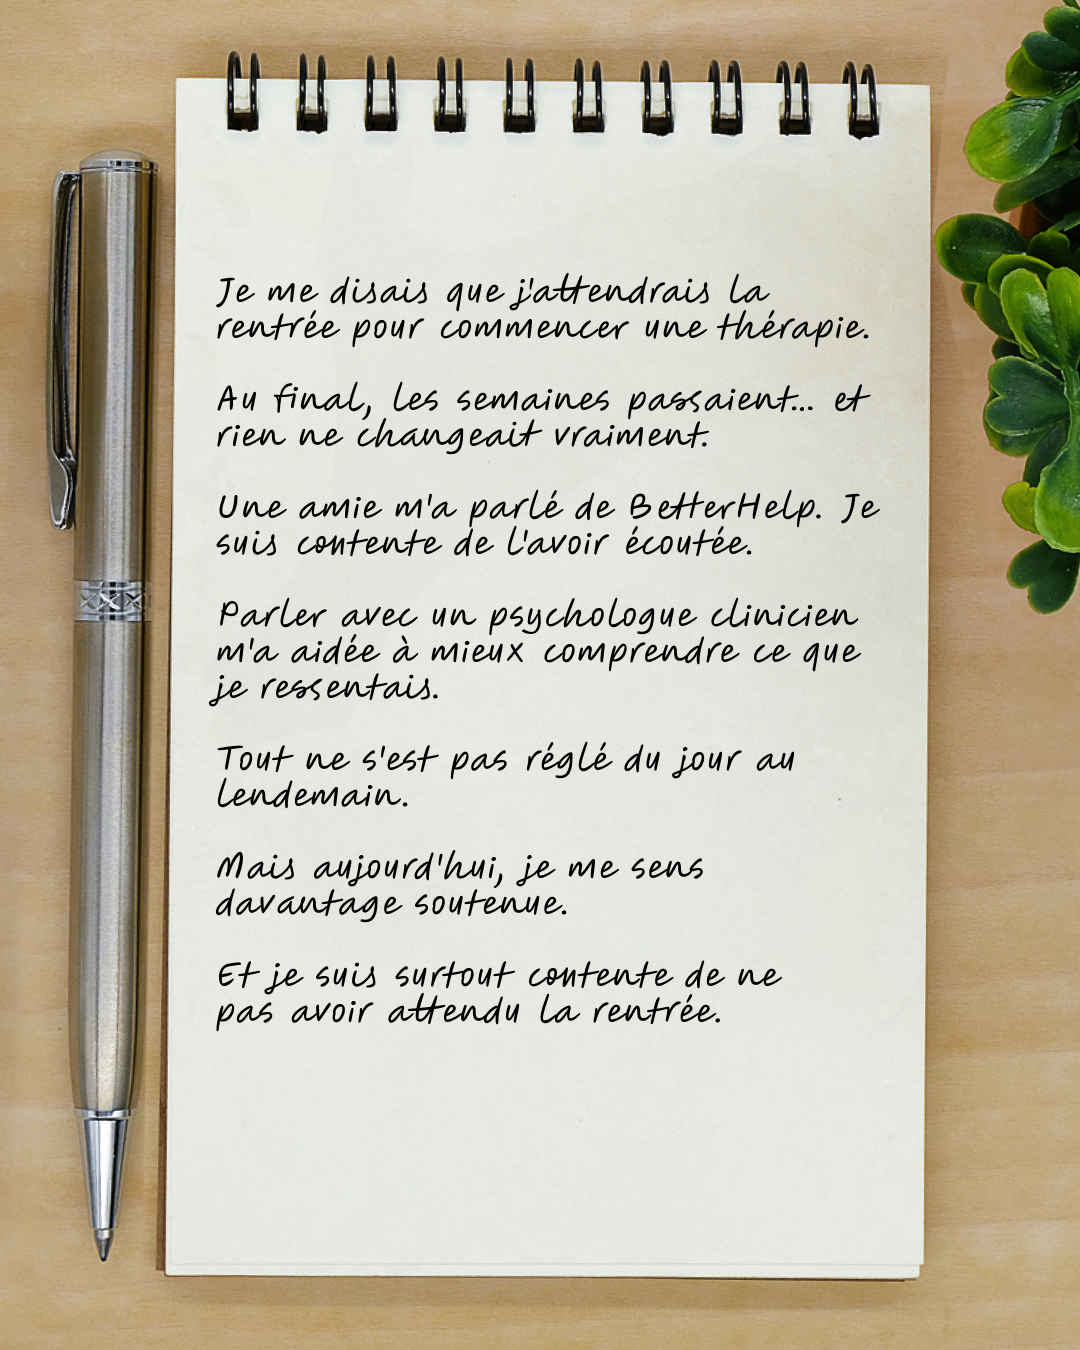 Je me disais que j'attendrais la
rentrée pour commencer une thérapie.
Au final, les semaines passaient... et
rien ne changeait vraiment.
Une amie m'a parlé de BetterHelp. Je
suis contente de l'avoir écoutée.
Parler avec un psychologue clinicien
m'a aidée à mieux comprendre ce que
je ressentais.
Tout ne s'est pas réglé du jour au
lendemain.
Mais aujourd'hui, je me sens
davantage soutenue.
Et je suis surtout contente de ne
pas avoir attendu la rentrée.